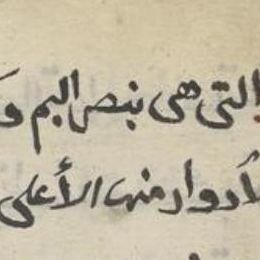 التى هى بنصر البم و
أدوار منها الأعلى